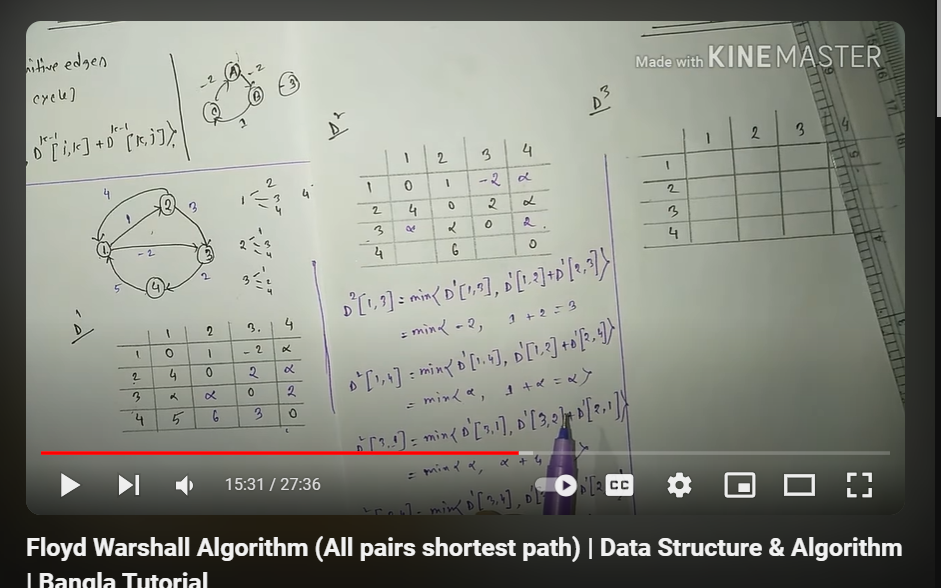 Made with KINEMASTER
sitive edges
cycle]
D^k-1 [i,k] + D^k-1 [k,j]}
A
-2
-2
B
C
1
-3
4
2
3
1
1
-2
3
5
4
2
1 2
3
4
4
2 1
3
4
3 1
2
4
D^1
1 2 3. 4
1 0 1 -2 α
2 4 0 2 α
3 α α 0 2
4 5 6 3 0
D^2
1 2 3 4
1 0 1 -2 α
2 4 0 2 α
3 α α 0 2.
4 6 0
D^2[1,3] = min{ D^1[1,3], D^1[1,2]+D^1[2,3]}
= min{ -2, 1 + 2 = 3
D^2[1,4] = min{ D^1[1,4], D^1[1,2]+D^1[2,4]}
= min{ α, 1 + α = α}
D^2[3,1] = min{ D^1[3,1], D^1[3,2]+D^1[2,1]}
= min{ α, α + 4
= min{ D^1[3,4],
D^3
1 2 3 4
1
2
3
4
15:31 / 27:36
CC
Floyd Warshall Algorithm (All pairs shortest path) | Data Structure & Algorithm
| Bangla Tutorial